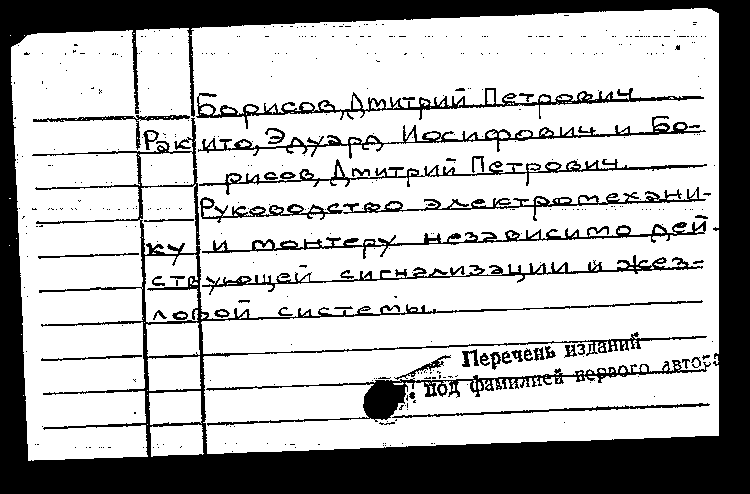 Борисов, Дмитрий Петрович
Рэкито, Эдуард Иосифович и Бо-
рисов, Дмитрий Петрович.
Руководство электромехани-
ку и монтеру независимо дей-
ствующей сигнализации и жез-
ловой системы.
Перечень изданий
под фамилией первого автора